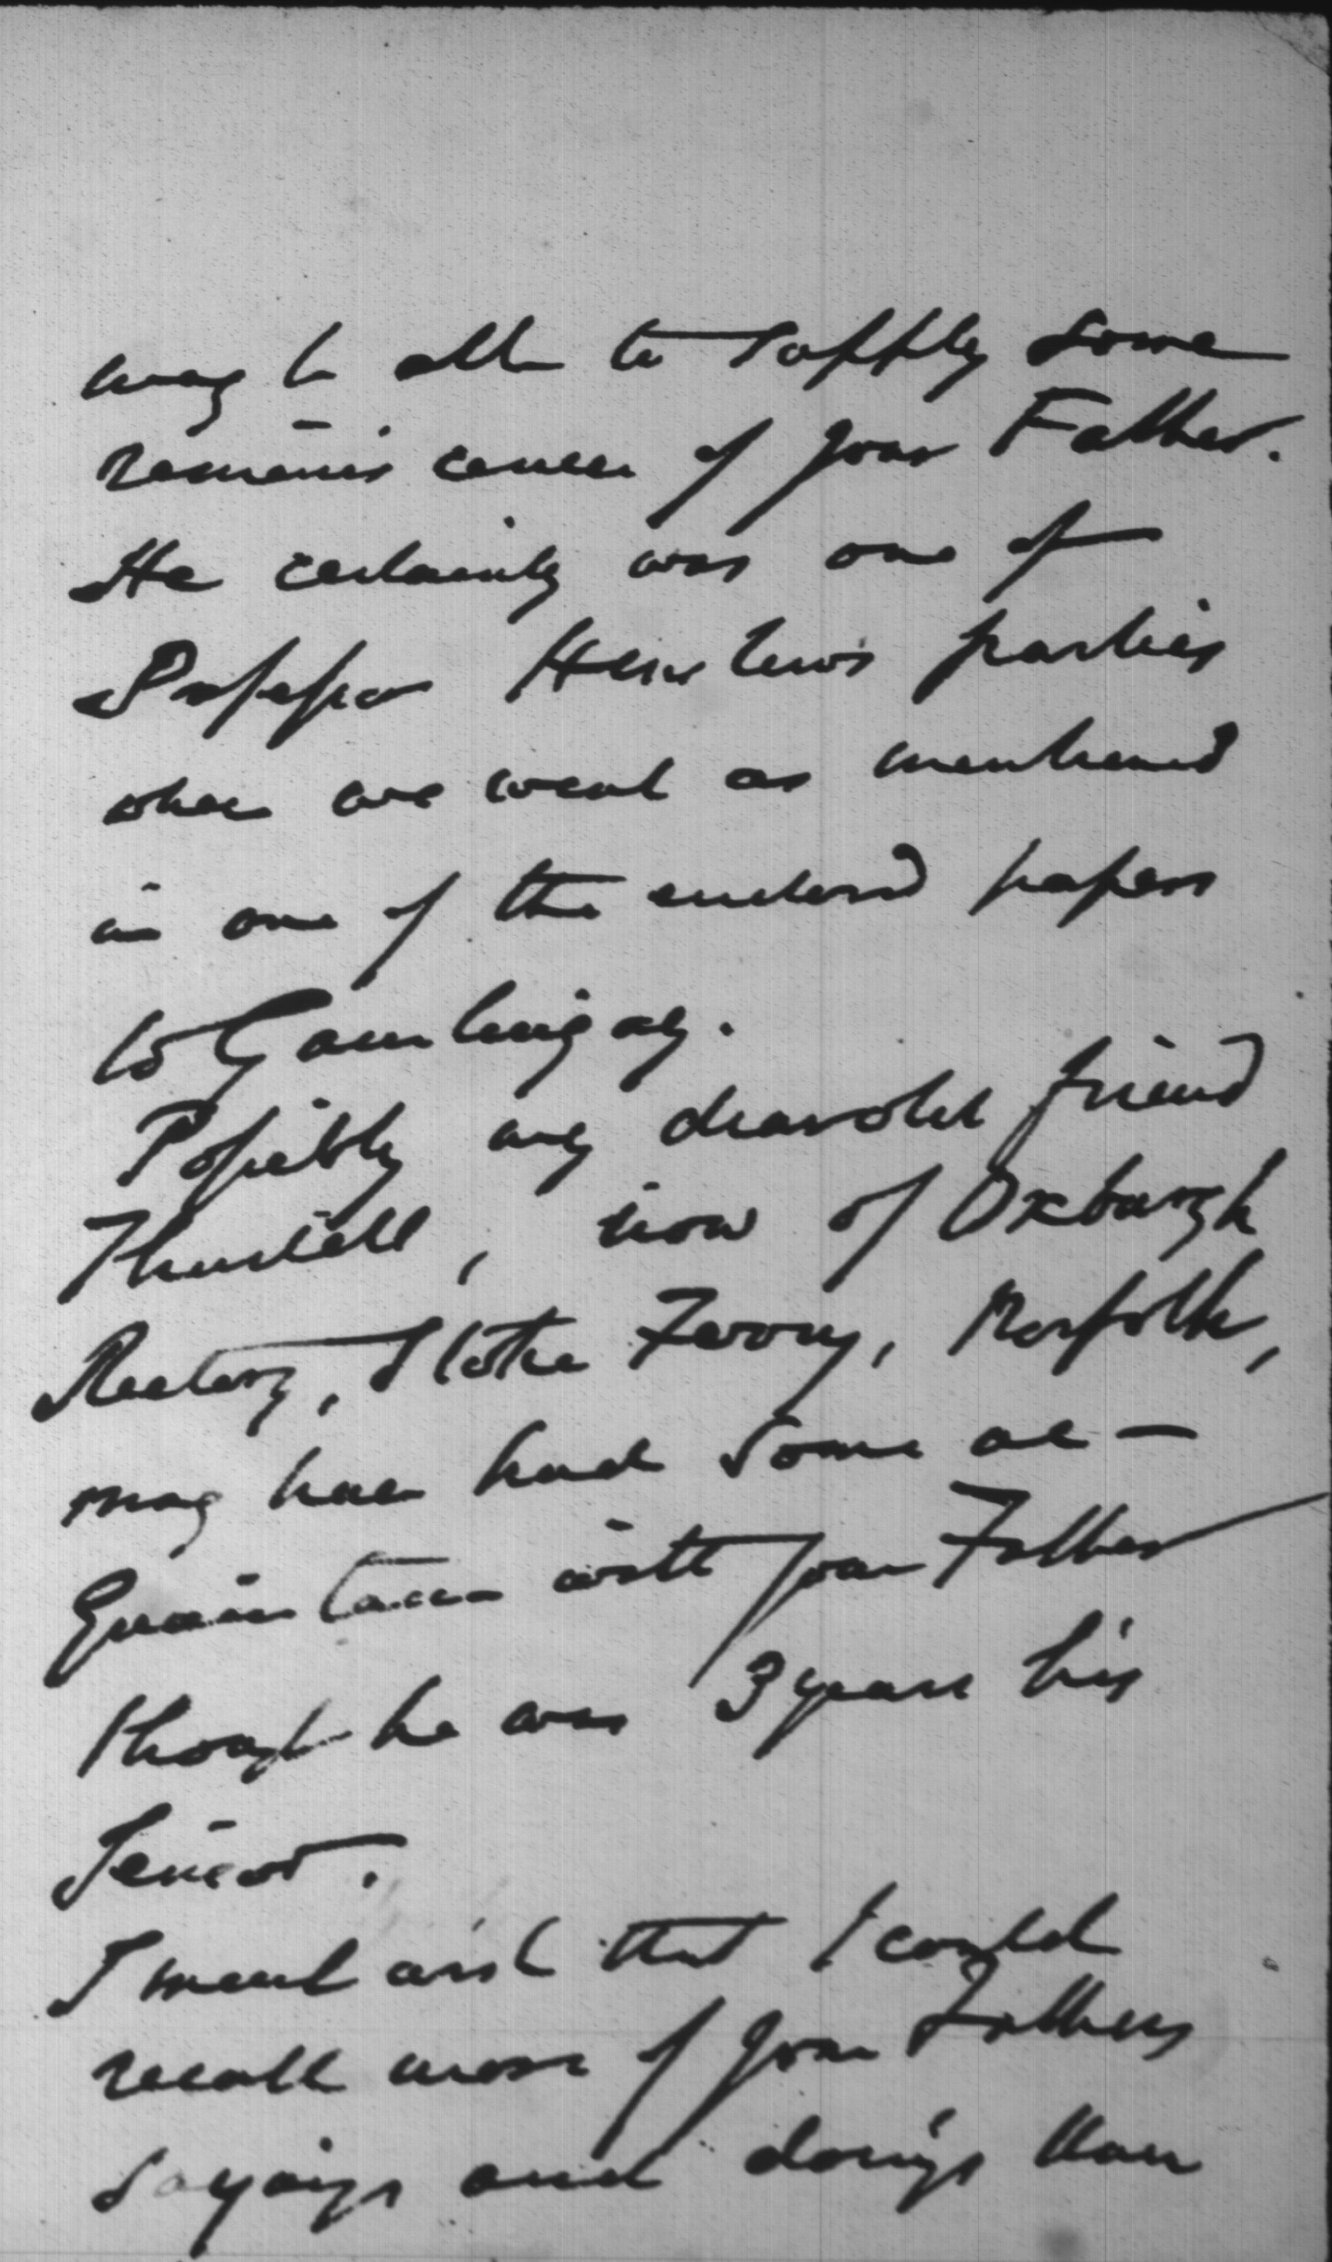 may be able to supply some
reminis cences of your Father.
He certainly was one of
Professor Henslow's parties
when we went as mentioned
in one of the enclosed papers
to Gamlingay.
Possibly my dear old friend
Thurtell, now of Oxburgh
Rectory, Stoke Ferry, Norfolk,
may have had some ac-
quaintance with your Father
though he was 3 years his
Senior.
I much wish that I could
recall more of your Fathers
sayings and doings than